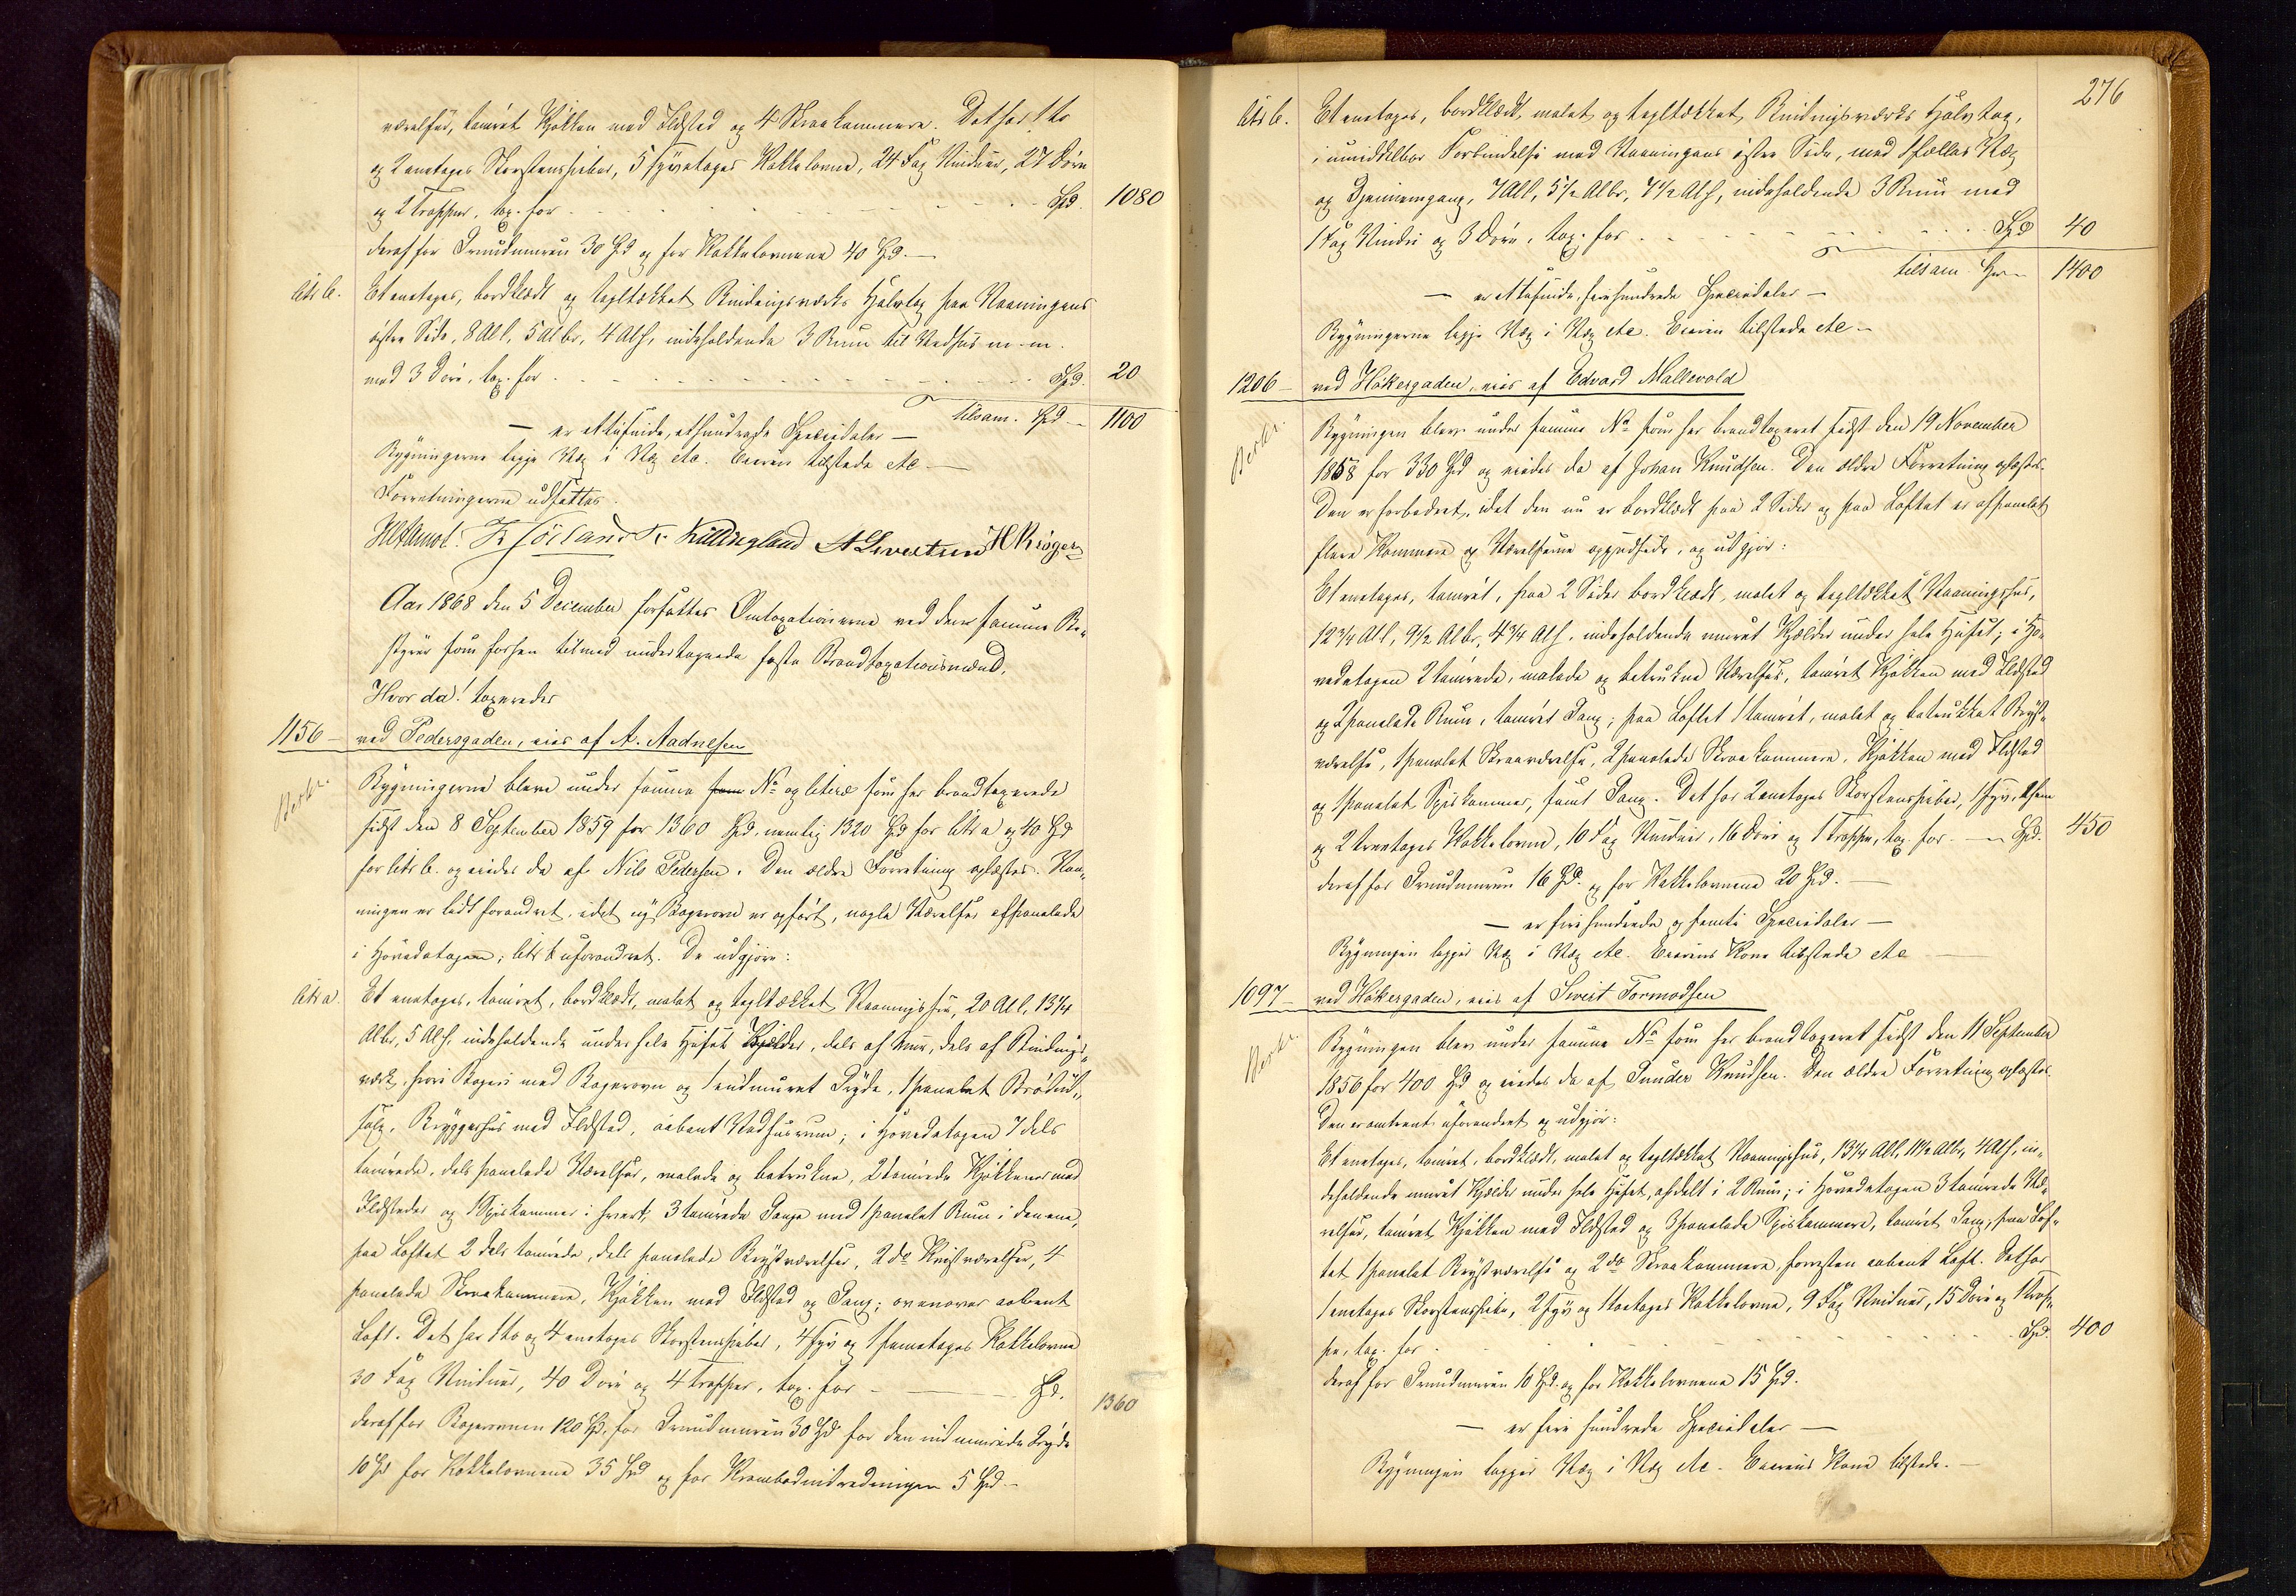 værelser, tømret Kjøkken med Ildsted og 4 Skraakammere. Det har 1 to
og 2 enetages Skorstenspiber, 5 fyvetages Kakkelovne, 24 Fag Vinduer, 27 Døre
og 2 Trapper, tax. for Spd. 1080
deraf for Grundmuren 30 Spd og for Kakkelovnene 40 Spd. —
Litr b. Et enetages, bordklædt og tegltækket Bindingsværks Halvtag paa Vaaningens
østre Side, 8 Al l, 5 Al br, 4 Al h, indeholdende 3 Rum til Vedhus m. m.
med 3 Døre, tax. for Spd. 20
tilsam. Spd — 1100
— er ettusinde, ethundrede Speciedaler —
Bygningerne ligge Væg i Væg etc. Eieren tilstede etc. —
Forretningerne udsattes.
Kjørland T. Kullingland A Sivertsen H Krøger
Aar 1868 den 5 December fortsattes Omtaxationerne ved den samme Be-
styrer som forhen tilmed undertegnede faste Brandtaxationsmænd.
Hvor da! taxeredes
1156 — ved Pedersgaden, eies af A. Aadnesen
Bygningerne bleve under samme No og litera som her brandtaxerede
sidst den 8 September 1859 for 1360 Spd, nemlig 1320 Spd for litr a og 40 Spd
for litr b. og eiedes da af Nils Pedersen. Den ældre Forretning oplæstes. Vaa-
ningen er lidt forandret, idet ny Bagerovn er opført, nogle Værelser afpanelede
i Hovedetagen; litr b uforandret. De udgjøre:
Litr a. Et enetages, tømret, bordklædt, malet og tegltækket Vaaningshus, 20 Al l, 13 1/4
Al br, 5 Al h, indeholdende under hele Huset Kjelder, dels af Mur, dels af Bindings-
værk, hvori Bageri med Bagerovn og 1 indmuret Gryde, 1 panelet Brødud-
salg, Bryggerhus med Ildsted, aabent Vedhusrum; i Hovedetagen 7 dels
tømrede, dels panelede Værelser, malede og betrukne, 2 tømrede Kjøkkener med
Ildsteder og 1 Spiskammer i hvert, 3 tømrede Gange med 1 panelet Rum i den ene,
paa Loftet 2 dels tømrede, dels panelede Brystværelser, 2 do Kvistværelser, 4
panelede Skraakammere, Kjøkken med Ildsted og Gang; ovenover aabent
Loft. Det har 1 to og 4 enetages Skorstenspiber, 4 fyv og 1 femetages Kakkelovne
30 Fag Vinduer, 40 Døre og 4 Trapper, tax. for — Spd. 1360
deraf for Bagerovnen 120 Spd, for Grundmuren 30 Spd for den indmurede Gryde
10 Spd for Kakkelovnene 35 Spd og for Krambodindredningen 5 Spd —
276
Litr b. Et enetages, bordklædt, malet og tegltækket, Bindingsværks Halvtag,
i umiddelbar Forbindelse med Vaaningens østre Side, med fælles Væg
og Gjennemgang, 7 Al l, 5 1/2 Al br, 7 1/2 Al h, indeholdende 3 Rum med
1 Fag Vindu og 3 Døre, tax. for Spd 40
tilsam. Spd — 1400
— er ettusinde, firehundrede Speciedaler —
Bygningerne ligge Væg i Væg etc. Eieren tilstede etc —
1206 — ved Høkergaden, eies af Edvard Mallevold
Bygningen blev under samme No som her brandtaxeret sidst den 19 November
1858 for 330 Spd og eiedes da af Johan Knudsen. Den ældre Forretning oplæstes.
Den er forbedret, idet den nu er bordklædt paa 2 Sider og paa Loftet er afpanelet
flere Kammere og Værelserne oppudsede, og udgjør:
Et enetages, tømret, paa 2 Sider bordklædt, malet og tegltækket Vaaningshus,
12 3/4 Al l, 9 1/2 Al br, 4 3/4 Al h, indeholdende muret Kjælder under hele Huset; i Ho-
vedetagen 2 tømrede, malede og betrukne Værelser, tømret Kjøkken med Ildsted
og 2 panelede Rum, tømret Gang; paa Loftet 1 tømret, malet og betrukket Bryst-
værelse, 1 panelet Skraaværelse, 2 panelede Skraakammere, Kjøkken med Ildsted
og 1 panelet Spiskammer, samt Gang. Det har 2 enetages Skorstenspiber, 1 fyv, 1 fem
og 2 treetages Kakkelovne, 10 Fag Vinduer, 16 Døre og 1 Trappe, tax. for — Spd. 450
deraf for Grundmuren 16 Spd. og for Kakkelovnene 20 Spd. —
— er firehundrede og femti Speciedaler —
Bygningen ligger Væg i Væg etc. Eierens Kone tilstede etc —
1097 — ved Høkergaden, eies af Sivert Tormodsen
Bygningen blev under samme No som her brandtaxeret sidst den 11 September
1856 for 400 Spd og eiedes da af Gunder Knudsen. Den ældre Forretning oplæstes.
Den er omtrent uforandret og udgjør:
Et enetages, tømret, bordklædt, malet og tegltækket Vaaningshus, 13 1/4 Al l, 11 1/2 Al br, 4 Al h, in-
deholdende muret Kjælder under hele Huset, afdelt i 2 Rum; i Hovedetagen 3 tømrede Væ-
relser, tømret Kjøkken med Ildsted og 3 panelede Spiskammere, tømret Gang; paa Lof-
tet 1 panelet Brystværelse og 2 do Skraakammere, forresten aabent Loft. Det har
1 enetages Skorstenspibe, 2 fyv og 1 toetages Kakkelovne, 9 Fag Vinduer, 15 Døre og 1 Trap-
pe, tax. for Spd. 400
deraf for Grundmuren 10 Spd. og for Kakkelovnene 15 Spd.
— er fire hundrede Speciedaler —
Bygningen ligger Væg i Væg etc. Eierens Kone tilstede. —